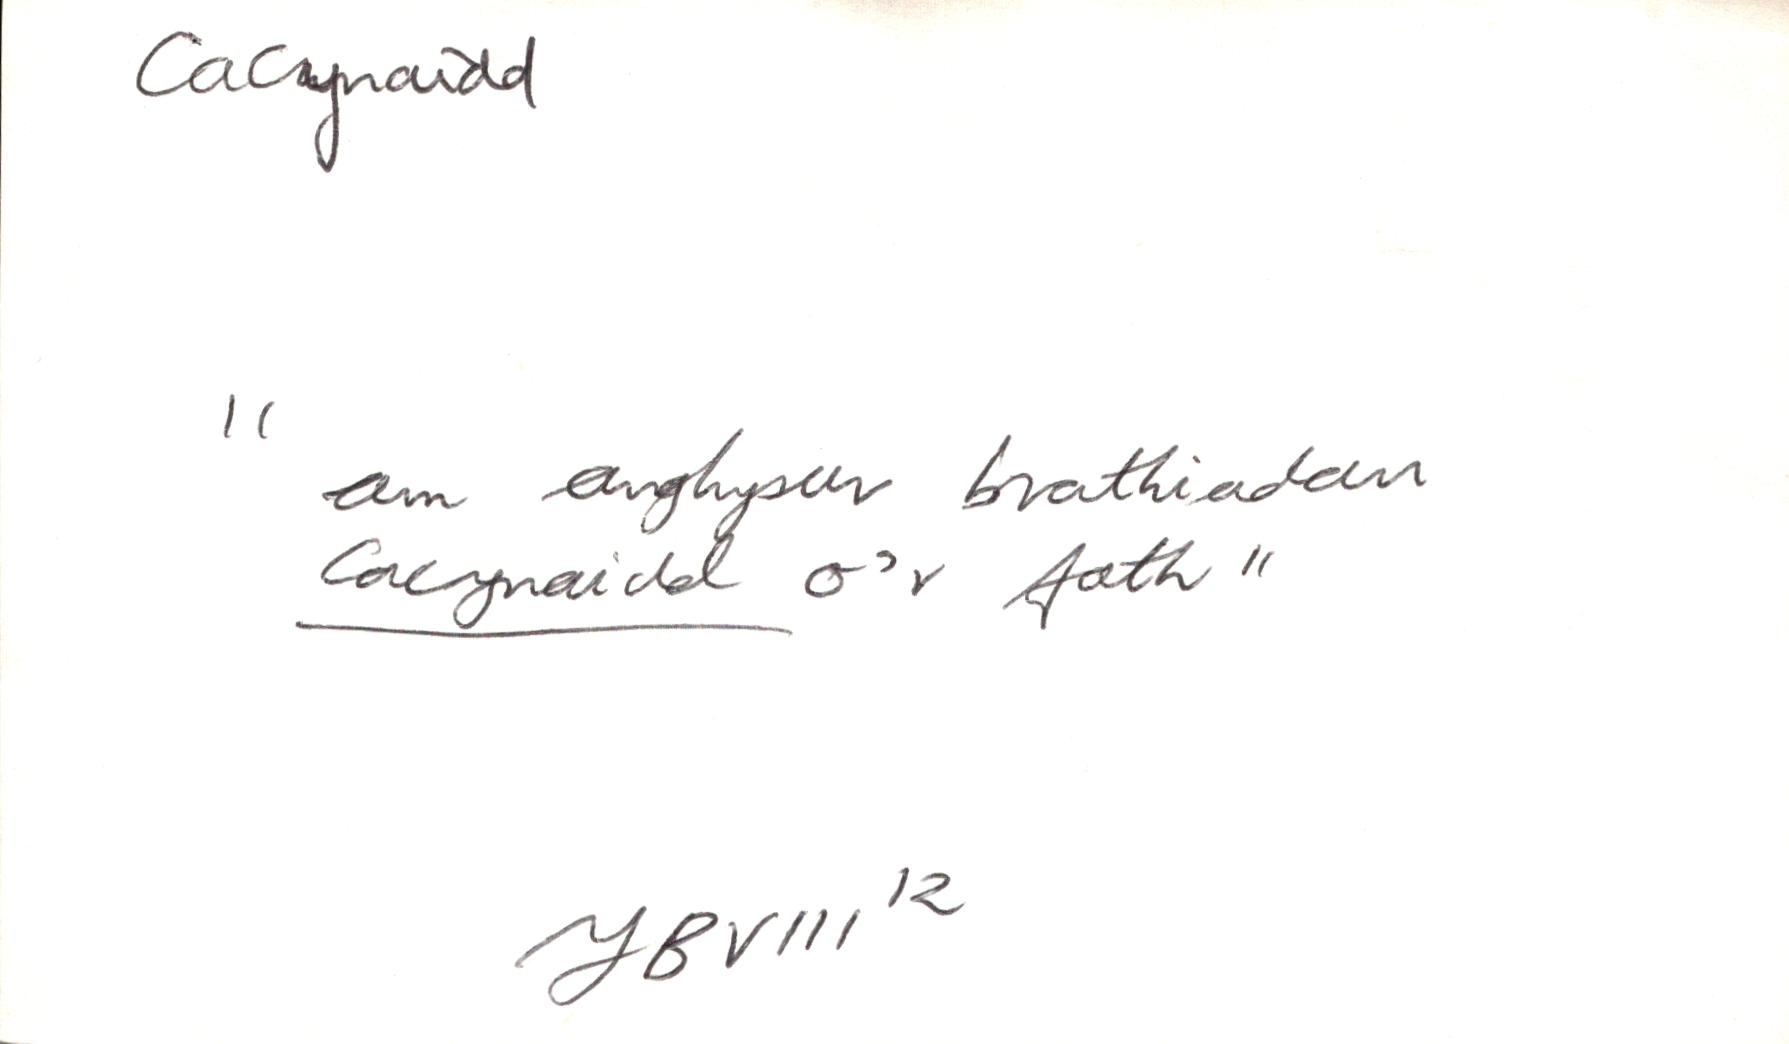 Cacynaidd
"am anghysur brathiadau
Cacynaidd o'r fath"
YBVIII¹²